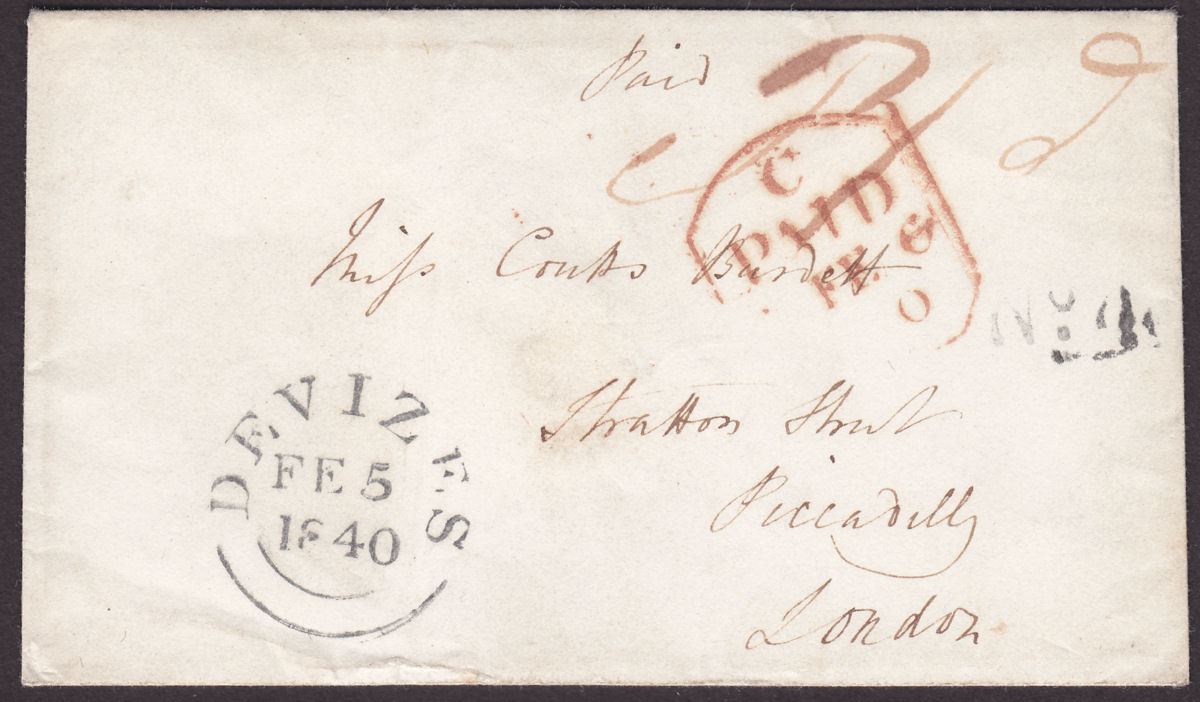 Paid
1 d
C
PAID
&
FE
O
Miss Coutts Burdett
No.
DEVIZES
FE 5
1840
Stratton Street
Piccadilly
London